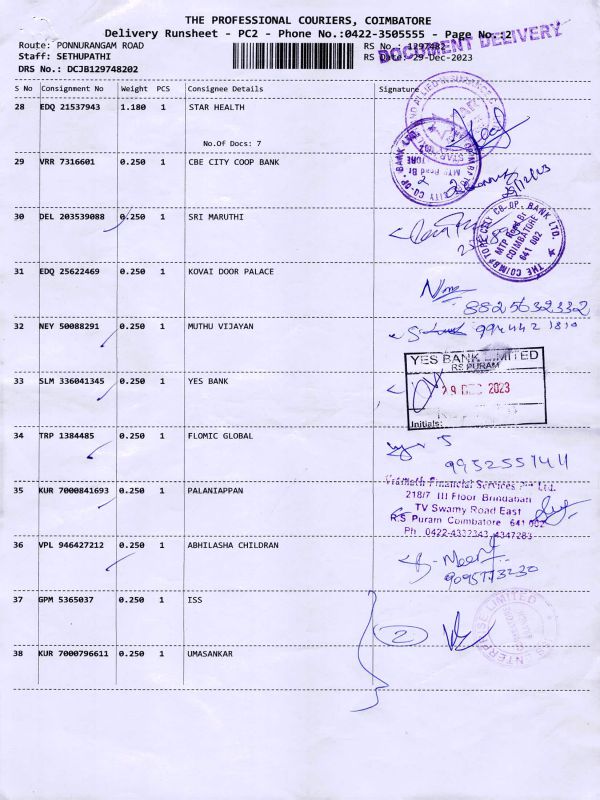 THE PROFESSIONAL COURIERS, COIMBATORE
Delivery Runsheet - PC2 - Phone No.:0422-3505555 - Page No.:2
Route: PONNURANGAM ROAD
RS No.: 1297482
DOCUMENT DELIVERY
Staff: SETHUPATHI
RS Date: 29-Dec-2023
DRS No.: DCJB129748202
S No Consignment No Weight PCS Consignee Details Signature
28 EDQ 21537943 1.180 1 STAR HEALTH
No.Of Docs: 7
29 VRR 7316601 0.250 1 CBE CITY COOP BANK
29/12/23
30 DEL 203539088 0.250 1 SRI MARUTHI
THE COIMBATORE CITY CO-OP. BANK LTD.
MTP Road Br
COIMBATORE
641 002
31 EDQ 25622469 0.250 1 KOVAI DOOR PALACE
8825632332
32 NEY 50088291 0.250 1 MUTHU VIJAYAN
994442 1810
YES BANK LIMITED
RS PURAM
33 SLM 336041345 0.250 1 YES BANK
29 DEC 2023
Initials:
34 TRP 1384485 0.250 1 FLOMIC GLOBAL
9952557144
Financial Services Pvt Ltd.
35 KUR 7000841693 0.250 1 PALANIAPPAN
218/7 III Floor Brindavan
TV Swamy Road East
R.S Puram Coimbatore 641 002
Ph 0422-4332343, 4347283
36 VPL 946427212 0.250 1 ABHILASHA CHILDRAN
9095773230
37 GPM 5365037 0.250 1 ISS
2
38 KUR 7000796611 0.250 1 UMASANKAR